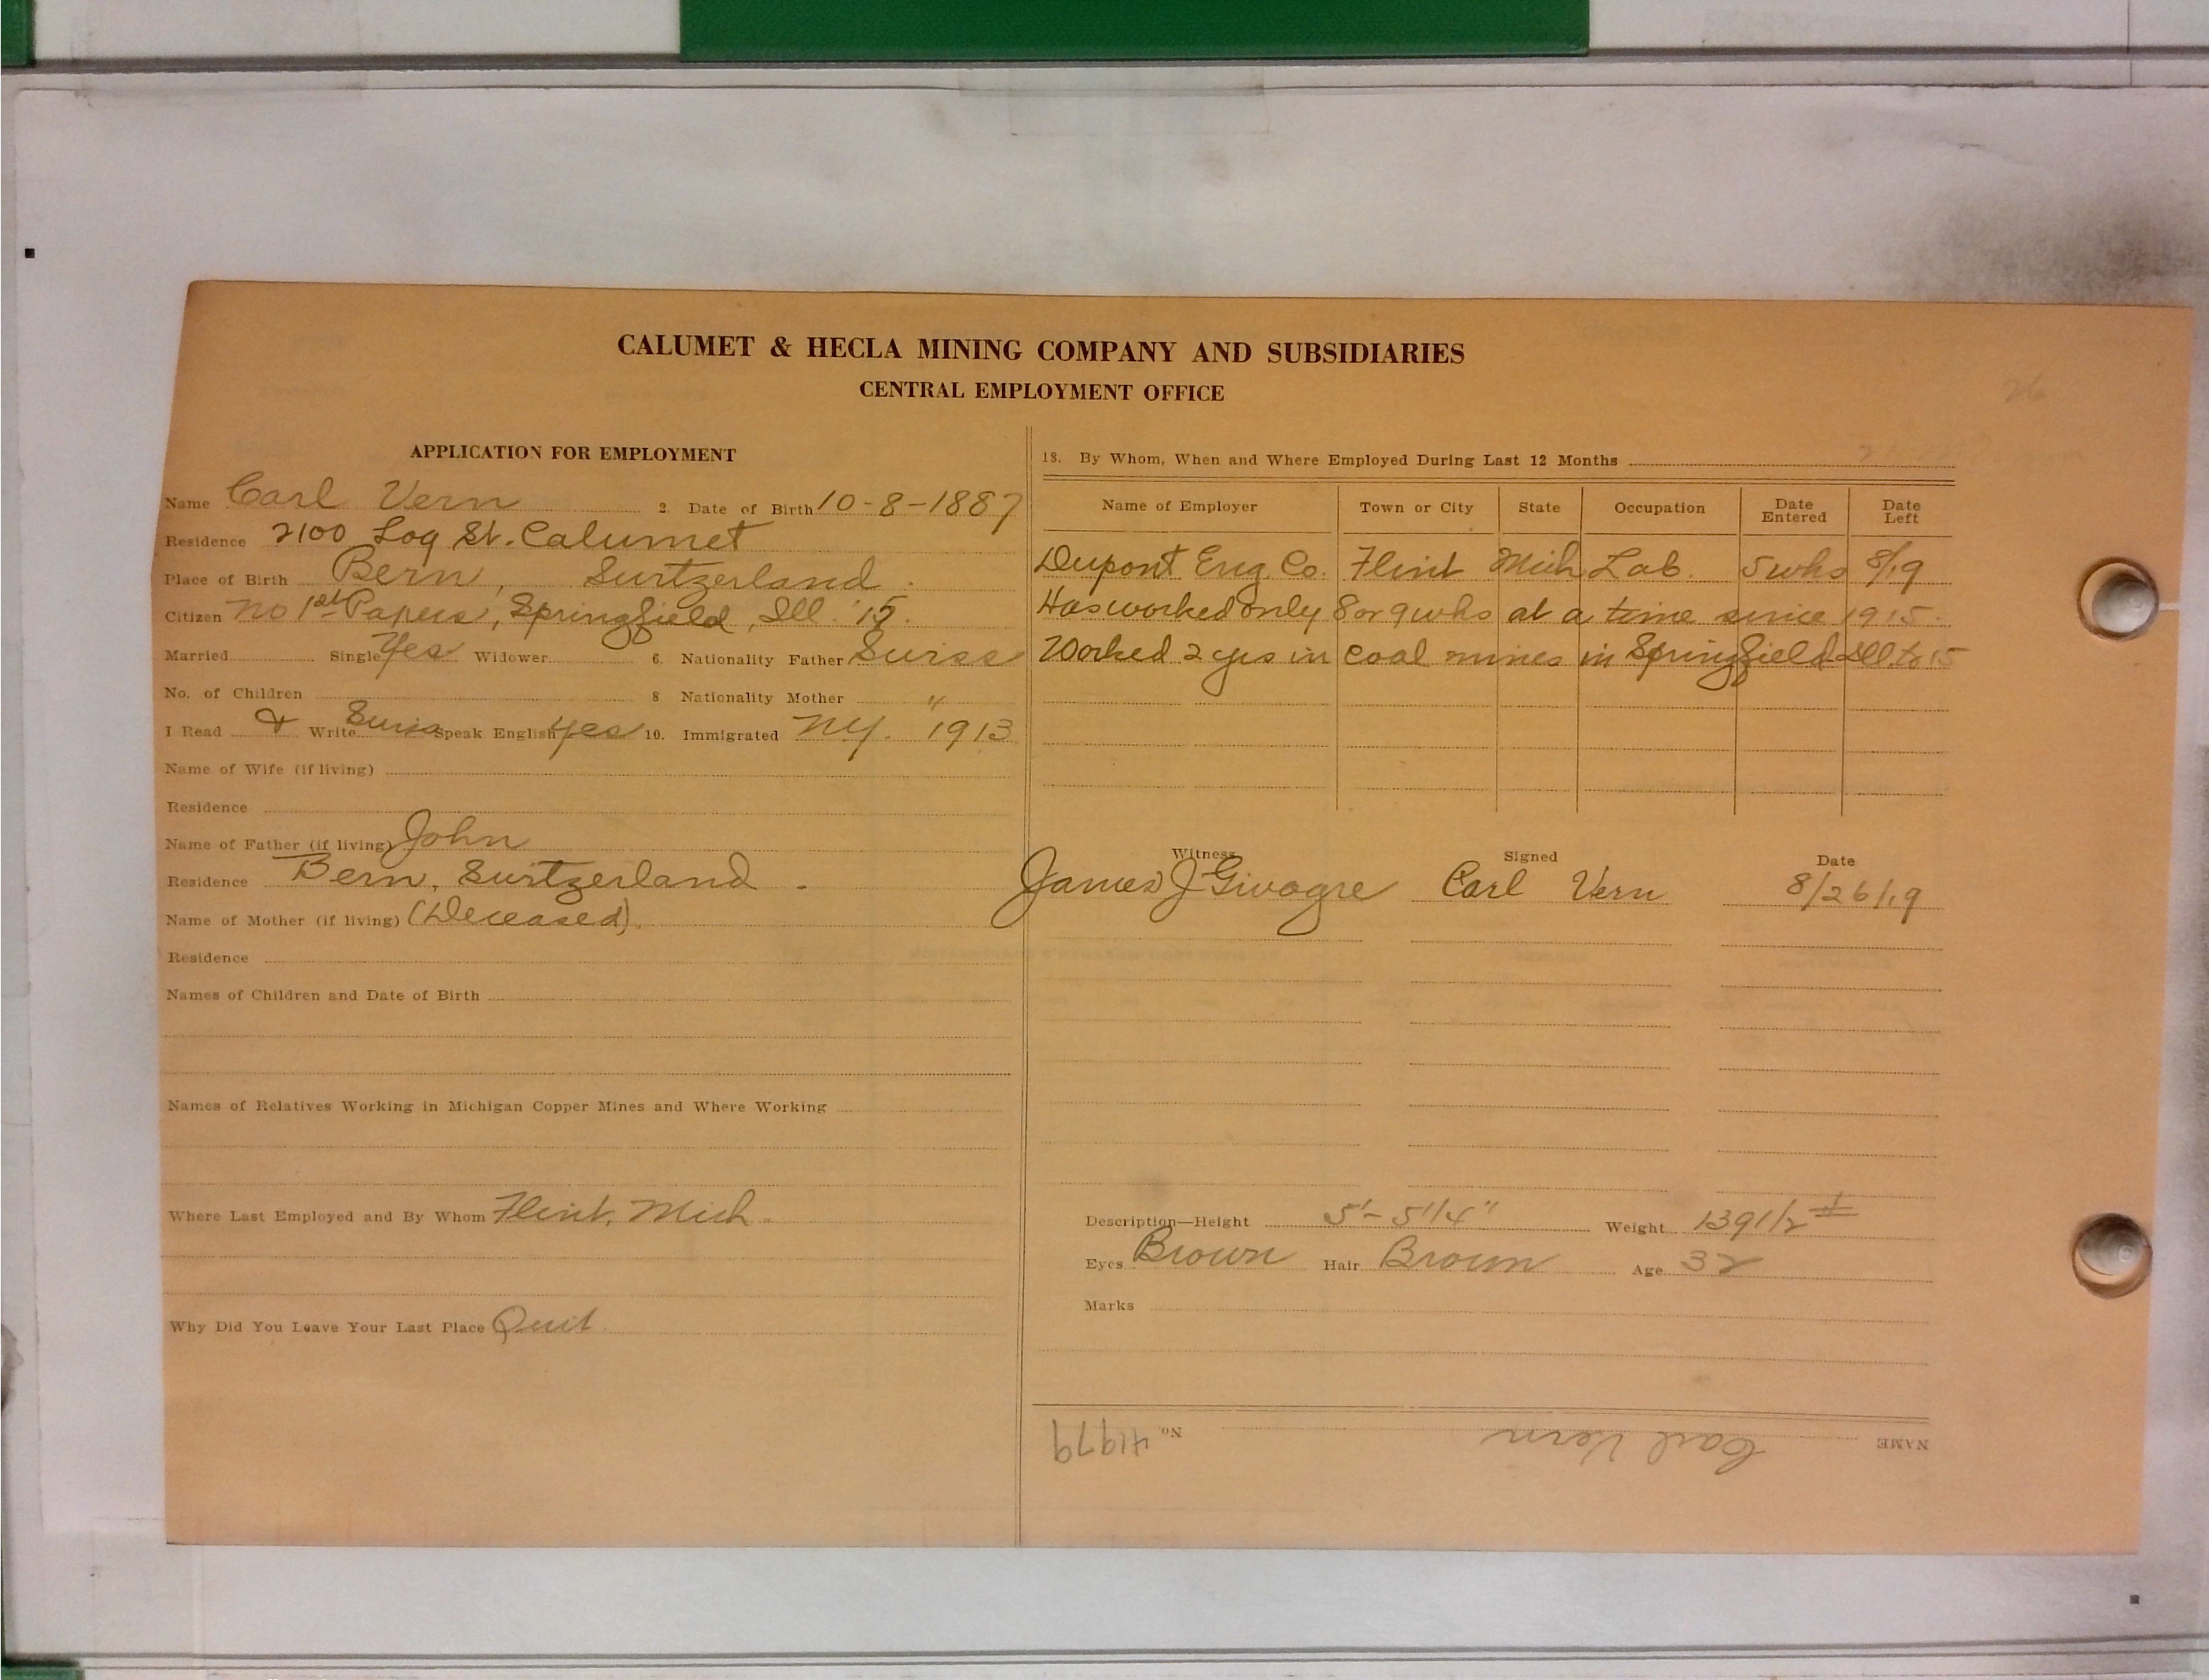 CALUMET & HECLA MINING COMPANY AND SUBSIDIARIES
CENTRAL EMPLOYMENT OFFICE
26
APPLICATION FOR EMPLOYMENT
Name Carl Vern 2. Date of Birth 10-8-1887
Residence 2100 Log St. Calumet
Place of Birth Bern, Switzerland.
Citizen no 1st Papers, Springfield, Ill. '15.
Married Single Yes Widower 6. Nationality Father Swiss
No. of Children 8 Nationality Mother "
I Read & Write Swiss Speak English yes 10. Immigrated NY. 1913
Name of Wife (if living)
Residence
Name of Father (if living) John
Residence Bern, Switzerland.
Name of Mother (if living) (Deceased).
Residence
Names of Children and Date of Birth
Names of Relatives Working in Michigan Copper Mines and Where Working
Where Last Employed and By Whom Flint, Mich.
Why Did You Leave Your Last Place Quit
18. By Whom, When and Where Employed During Last 12 Months
Name of Employer Town or City State Occupation Date Entered Date Left
Dupont Eng. Co. Flint Mich Lab. 5 wks 8/19
Has worked only 8 or 9 wks at a time since 1915.
Worked 2 yrs in coal mines in Springfield Ill. to 15
Witness Signed Date
James J Carl Vern 8/26/19
Description—Height 5'-5 1/4" Weight 139 1/2 #
Eyes Brown Hair Brown Age 32
Marks
NAME Carl Vern No. 41979